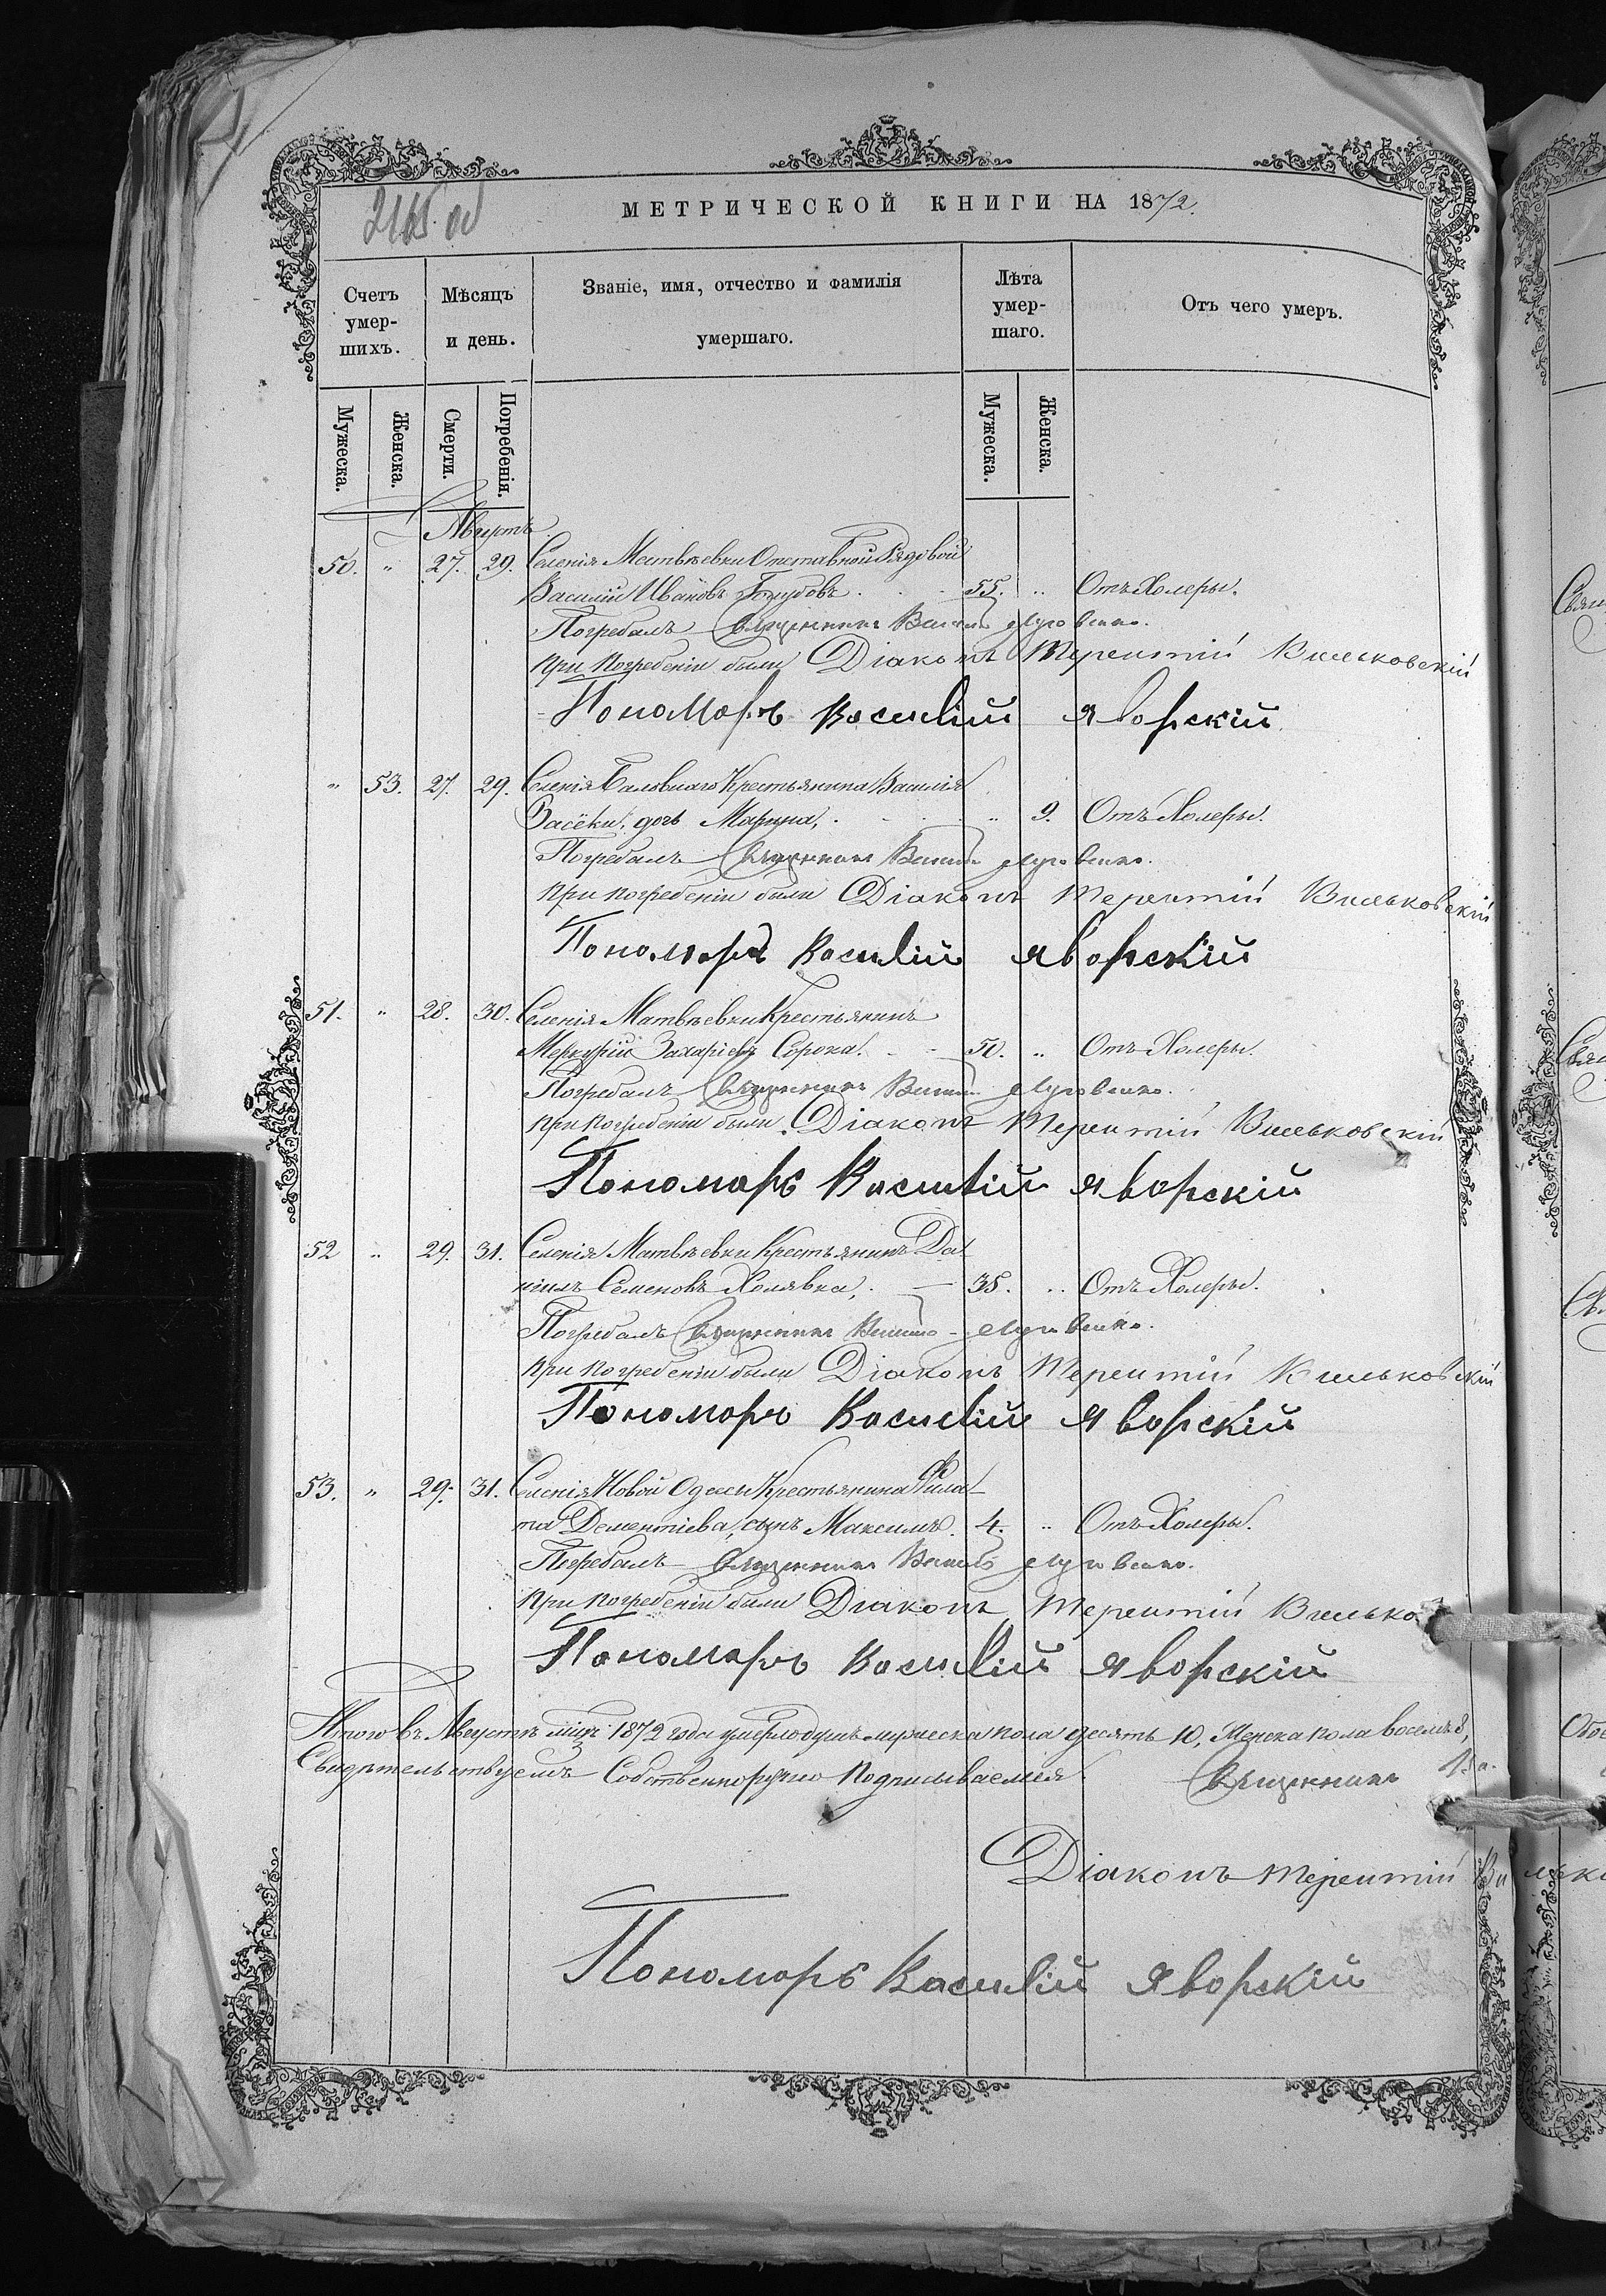 2165 об
МЕТРИЧЕСКОЙ КНИГИ НА 1872.
Счетъ умер-шихъ. Мѣсяцъ и день. Званіе, имя, отчество и фамилія умершаго. Лѣта умер-шаго. Отъ чего умеръ.
Мужеска. Женска. Смерти. Погребенія. Мужеска. Женска.
Августъ
50. " 27. 29. Селенія Матвѣевки Отставной Рядовой
Василій Ивановъ Голубовъ. 55. " Отъ Холеры.
Погребалъ Священникъ
при погребеніи были Діаконъ Терентій Вильковскій
Пономарь Василій Яворскій
" 53. 27. 29. Селенія Баловнаго Крестьянина Василія
Засёки, дочь Марина, " 9. Отъ Холеры.
Погребалъ Священникъ
при погребеніи были Діаконъ Терентій Вильковскій
Пономарь Василій Яворскій
51. " 28. 30. Селенія Матвѣевки Крестьянинъ
Меркурій Захаріевъ Сорока. 50. " Отъ Холеры.
Погребалъ Священникъ
при погребеніи были Діаконъ Терентій Вильковскій
Пономарь Василій Яворскій
52 " 29. 31. Селенія Матвѣевки Крестьянинъ Да
ніилъ Семеновъ Холявка, 35. " Отъ Холеры.
Погребалъ Священникъ
при погребеніи были Діаконъ Терентій Вильковскій
Пономарь Василій Яворскій
53. " 29. 31. Селенія Новой Одессы Крестьянина Фила
та Дементіева, сынъ Максимъ. 4. " Отъ Холеры.
Погребалъ Священникъ
при погребеніи были Діаконъ Терентій Вилько
Пономарь Василій Яворскій
Итого въ Августѣ мцѣ 1872 года умерло душъ мужеска пола десять 10, Женска пола восемь 8,
Свидѣтельствуемъ Собственноручно Подписываемся. Священникъ
Діаконъ Терентій Вилько
Пономарь Василій Яворскій